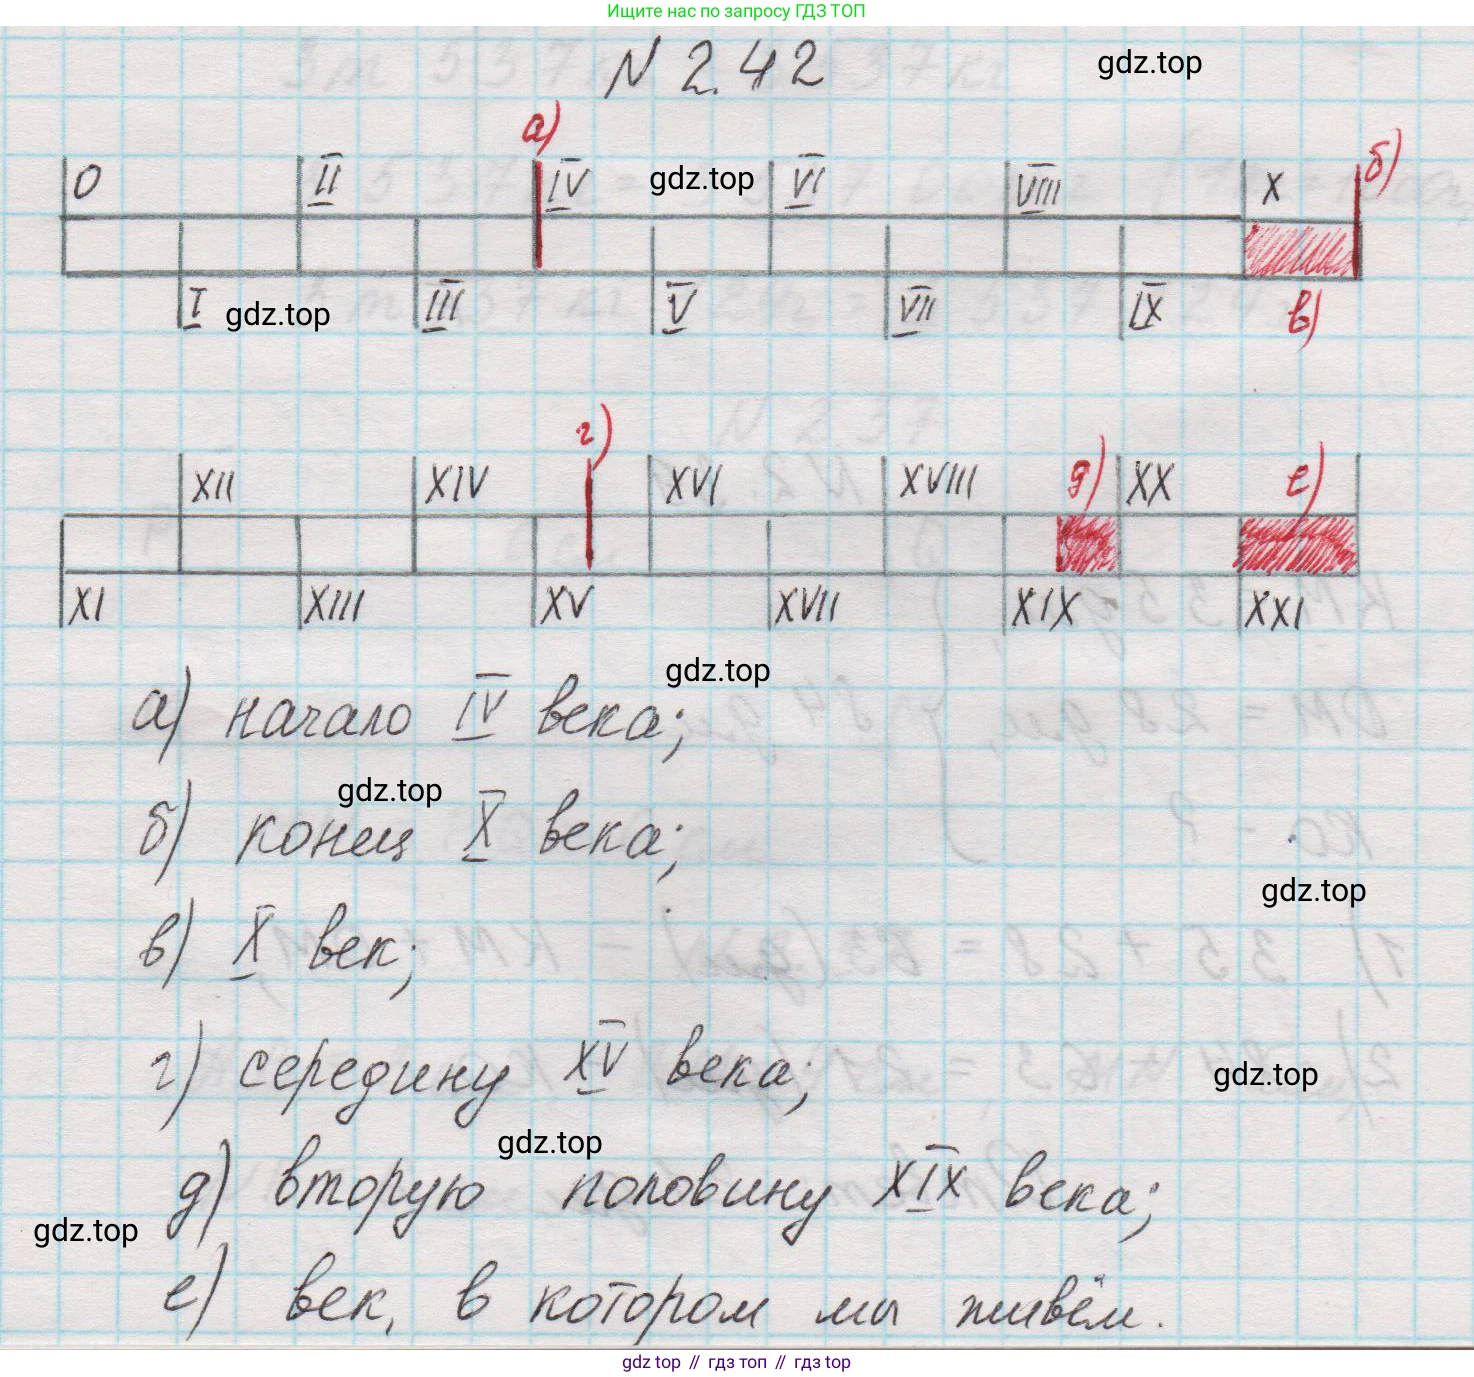 Ищите нас по запросу ГДЗ ТОП
N 2.42
gdz.top
а)
б)
0 II IV gdz.top VI VIII X
I gdz.top III V VII IX в)
г)
XII XIV XVI XVIII д) XX е)
XI XIII XV XVII XIX XXI
gdz.top
а) начало IV века;
gdz.top
б) конец X века;
gdz.top
в) X век;
г) середину XV века;
gdz.top
gdz.top
д) вторую половину XIX века;
gdz.top
е) век, в котором мы живём.
gdz top // гдз топ // гдз top